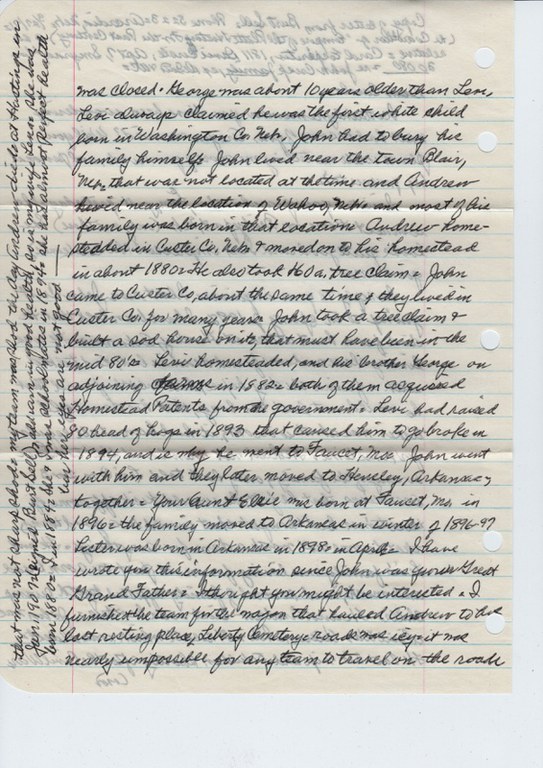 was closed. George was about 10 years older than Levi,
Levi always claimed he was the first white child
born in Washington Co. Nebr, John had to bury his
family himself. John lived near the town Blair,
Nebr, that was not located at the time and Andrew
lived near the location of Wahoo, Nebr and most of his
family was born in that location. Andrew home-
stedded in Custer Co, Nebr & moved on to his homestead
in about 1880. He also took 160 a, tree claim. John
came to Custer Co, about the same time & they lived in
Custer Co. for many years. John took a tree claim &
built a sod house on it, that must have been in the
mid 80's. Levi homesteaded, and his brother George on
adjoining in 1982. both of them acquired
Homestead Patents from the government. Levi had raised
80 head of hogs in 1893 that caused him to go broke in
1894, and is why he went to Faucet, Mo. John went
with him and they later moved to Hensley, Arkansas,
together. Your Aunt Elsie was born at Faucet, Mo. in
1896. the family moved to Arkansas in winter of 1896-97
Lester was born in Arkansas in 1898. in April. I have
wrote you this information since John was your Great
Grand Father. I thought you might be interested. I
furnished the team for the wagon that hauled Andrew to his
last resting place, Liberty Cemetery. roads was icy. it was
nearly impossible for any team to travel on the roads
that was not sharp shod. my team was shod the day Andrew died at Hastings in
Jan, 1901. Signed Burt Sell, Jr. in good health, so is my wife Lenor. she was
born 1880. I in 1884. she & I was schoolmates in 1894. she had almost perfect health
but her eyes are not good